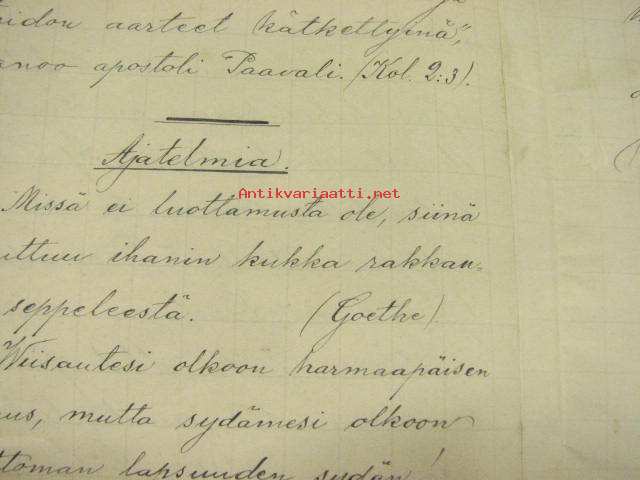 aarteet kätkettyinä",
apostoli Paavali. (Kol. 2:3).
Ajatelmia.
Antikvariaatti.net
Missä ei luottamusta ole, siinä
ihanin kukka rakkau-
seppeleestä. (Goethe).
Wiisautesi olkoon harmaapäisen
mutta sydämesi olkoon
lapsuuden sydän!